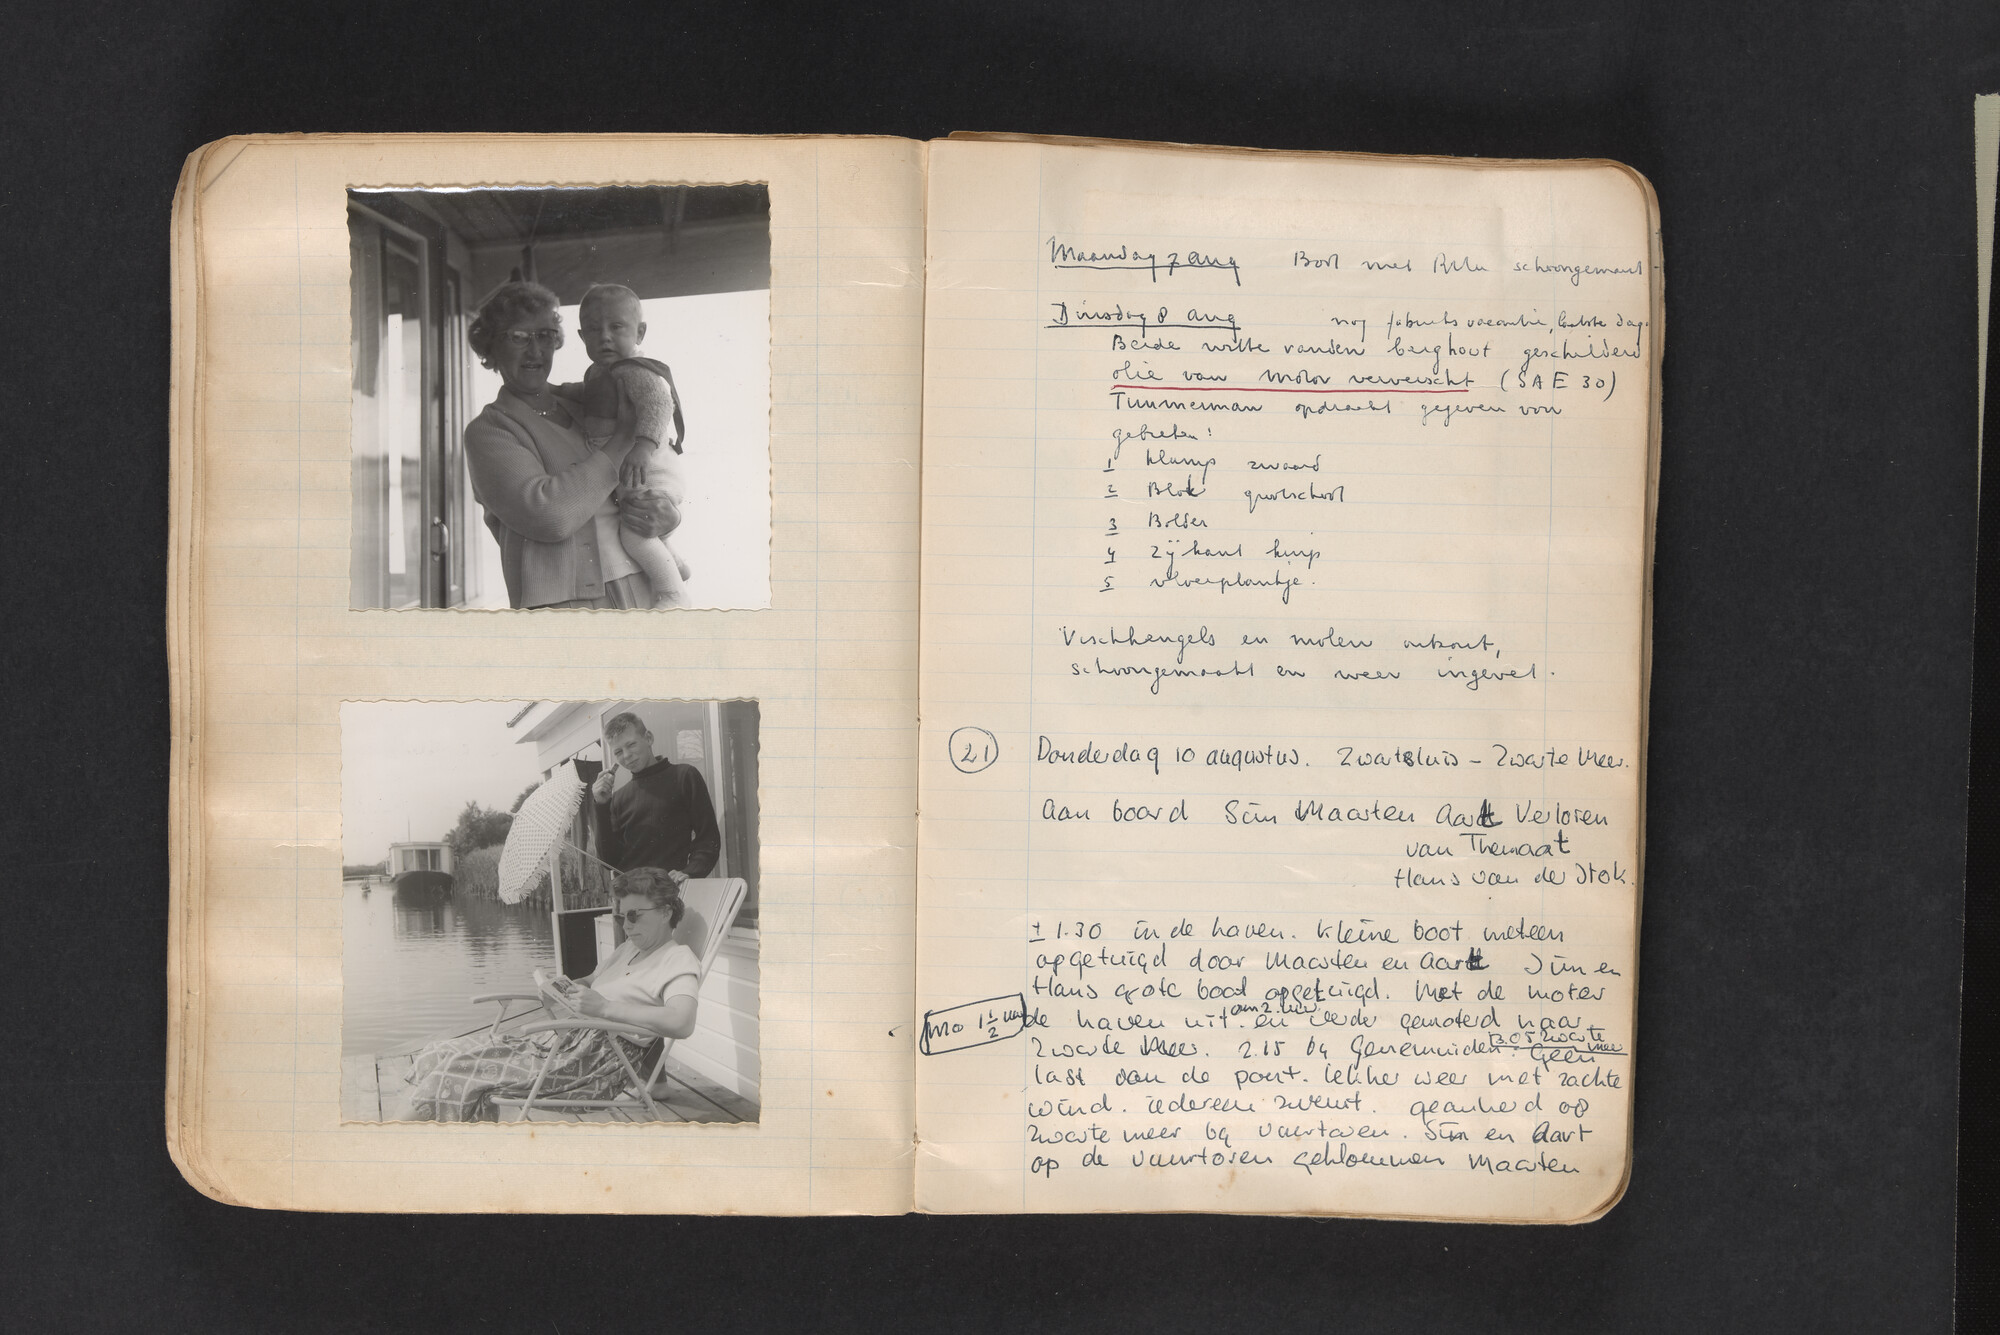 Maandag 7 aug Boot met schoongemaakt
Dinsdag 8 aug nog fabrieks vacantie, laatste dag.
Beide witte randen berghout geschilderd
olie van motor ververscht (SAE 30)
Timmerman opdracht gegeven van
gebreken:
1 klamp zwaard
2 Blok grootschoot
3 Bolder
4 zijkant kuip
5 vloerplankje.
Vischhengels en molen ontzout,
schoongemaakt en weer ingevet.
21 Donderdag 10 augustus. Zwartsluis - Zwarte Meer.
Aan boord Siem Maarten Aart Verloren
van Themaat
Hans van der Stok.
± 1.30 in de haven. Kleine boot meteen
opgetuigd door Maarten en Aart Siem en
Hans grote boot opgetuigd. Met de motor
mo 1 1/2 uur de haven uit om 2 uur en verder gemoterd naar
Zwarte Meer. 2.15 bij Genemuiden. 3.05 Zwarte meer Geen
last van de pont. lekker weer met zachte
wind. iedereen zwemt. geankerd op
Zwarte meer bij vuurtoren. Siem en Aart
op de vuurtoren geklommen Maarten